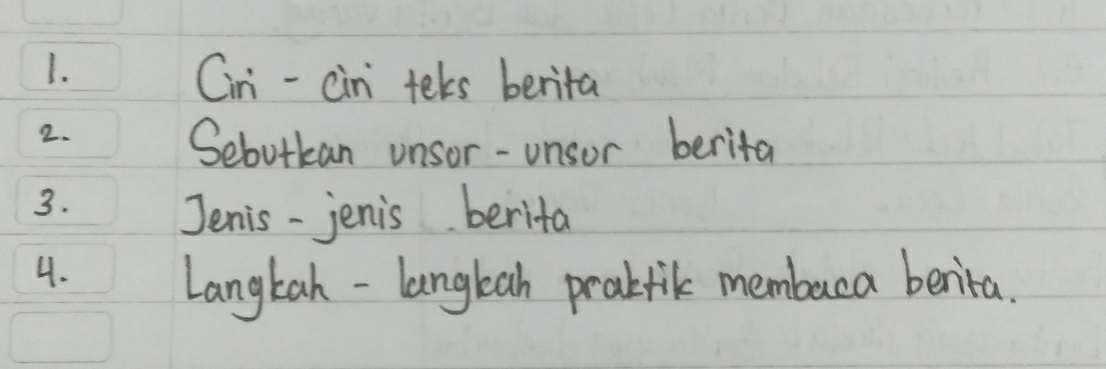 1. Ciri - ciri teks berita
2. Sebutkan unsur - unsur berita
3. Jenis - jenis berita
4. Langkah - langkah praktik membaca berita.